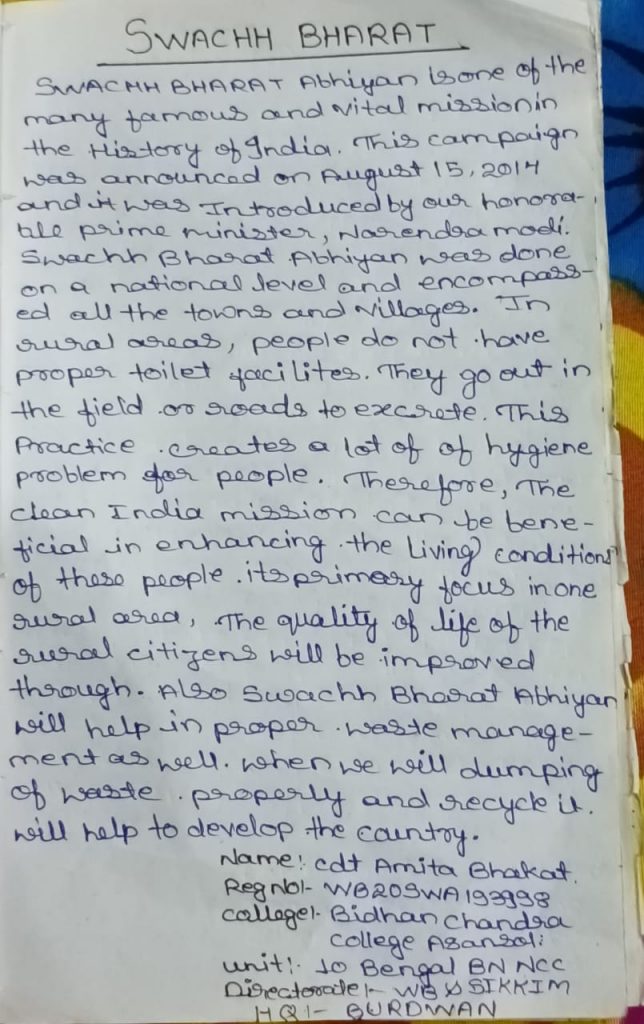 SWACHH BHARAT
SWACHH BHARAT Abhiyan is one of the
many famous and vital mission in
the History of India. This campaign
was announced on August 15, 2014
and it was Introduced by our honora-
ble prime minister, Narendra modi.
Swachh Bharat Abhiyan was done
on a national level and encompass-
ed all the towns and villages. In
rural areas, people do not have
proper toilet facilites. They go out in
the field or roads to excrete. This
Practice creates a lot of of hygiene
problem for people. Therefore, The
clean India mission can be bene-
ficial in enhancing the Living conditions
of these people. its primary focus in one
rural area, The quality of life of the
rural citizens will be improved
through. Also Swachh Bharat Abhiyan
will help in proper waste manage-
ment as well. when we will dumping
of waste properly and recycle it.
will help to develop the country.
Name:- cdt Amita Bhakat.
Reg No:- WB20SWA193998
college:- Bidhan Chandra
college Asansol:
unit:- 10 Bengal BN NCC
Directorate:- WB & SIKKIM
HQ:- BURDWAN